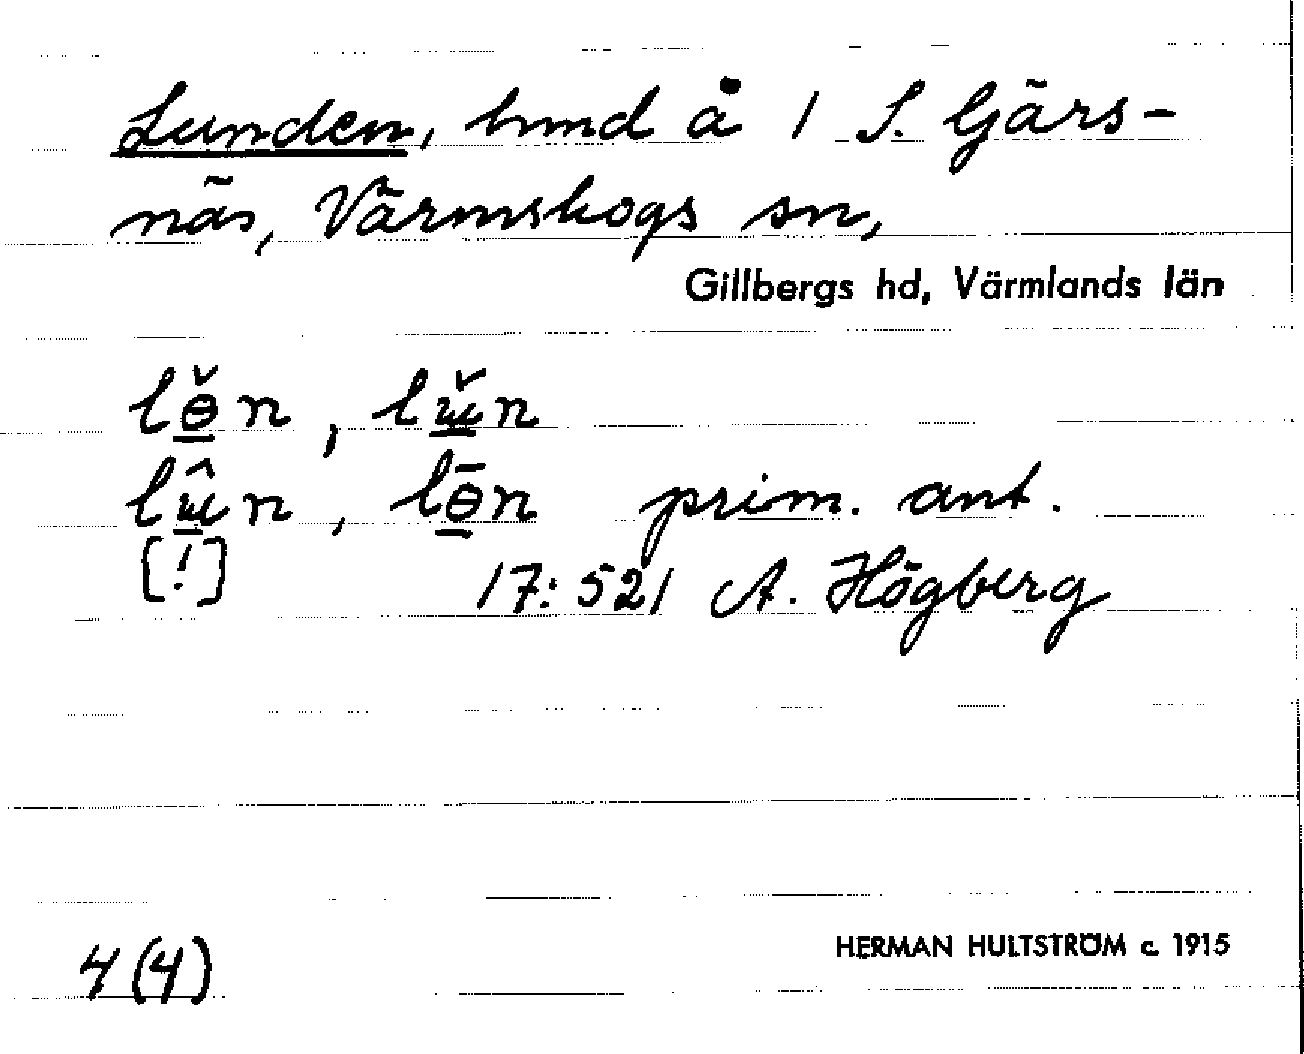 Lunden, hmd å 1 S. Gärs-
näs, Värmskogs sn,
Gillbergs hd, Värmlands län
lɵ̯̌n, lɯ̯̌n
lɯ̯̂n, lɵ̯̄n prim. ant.
[!] 17:521 A. Högberg
4(4)
HERMAN HULTSTRÖM c. 1915